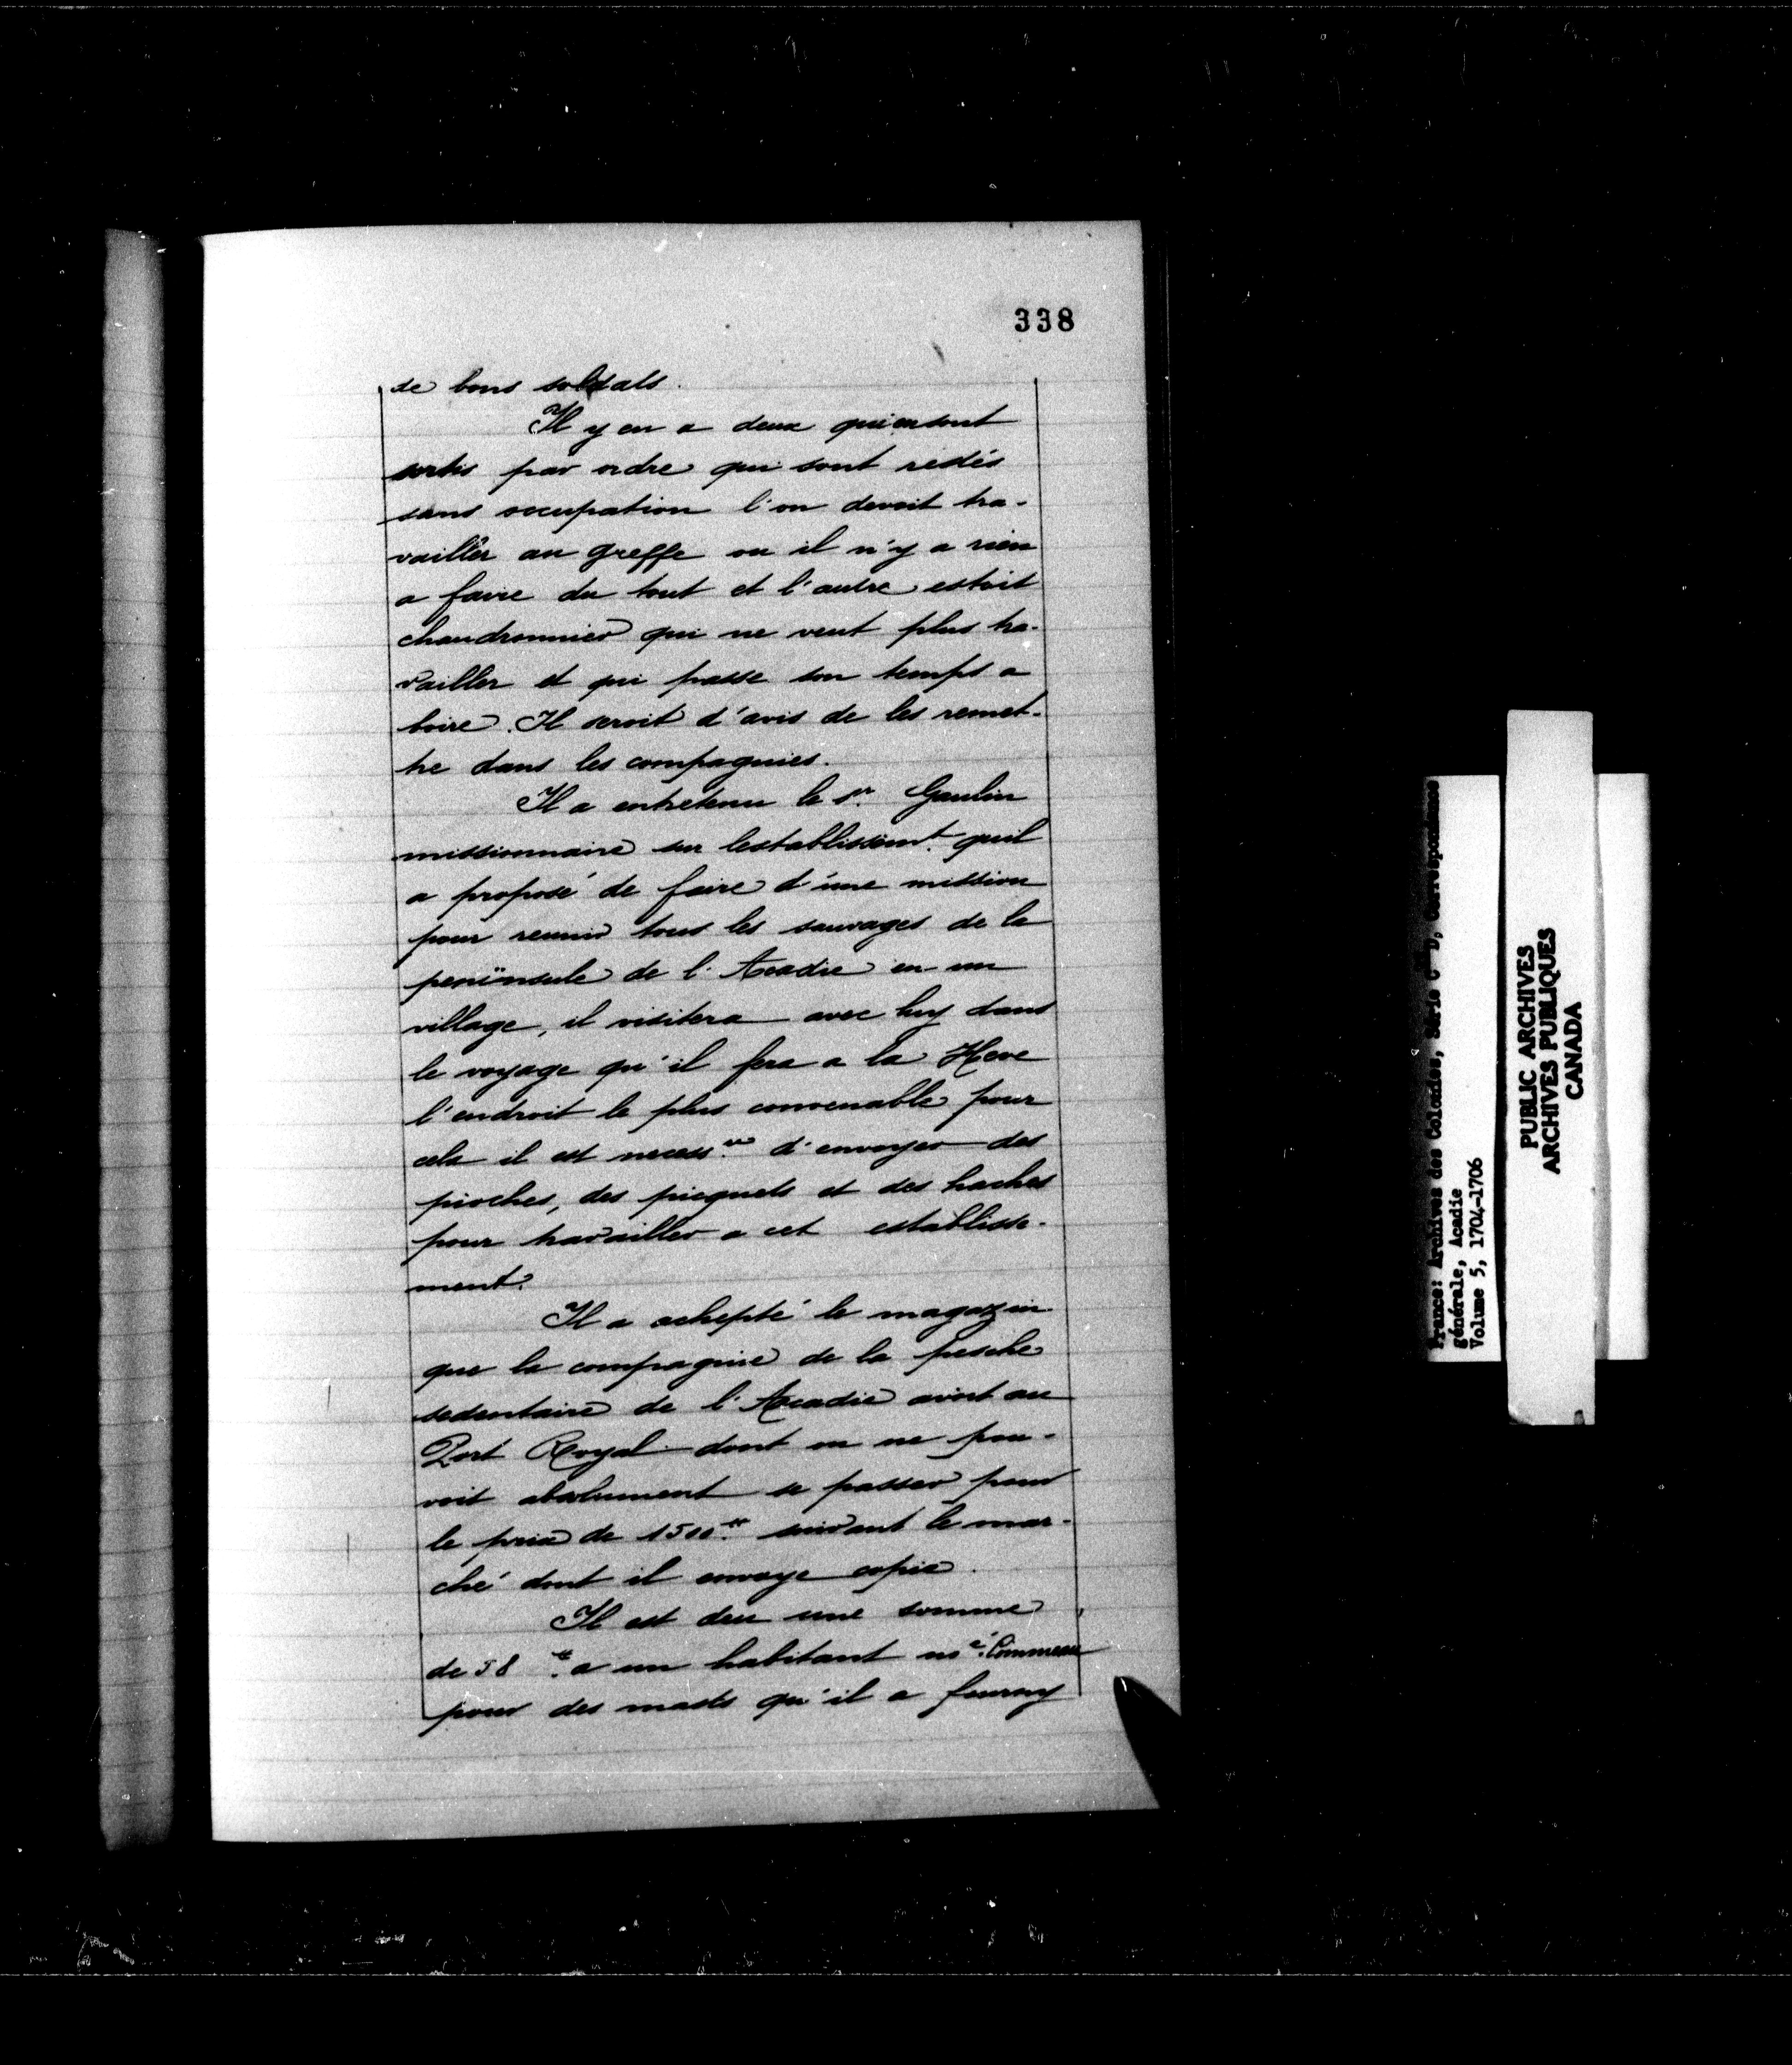 338
de bons soldats.
Il y en a deux qui en sont
sortis par ordre qui sont restés
sans occupation l'on devoit tra-
vailler au greffe ou il n'y a rien
a faire du tout et l'autre estoit
chaudronnier qui ne veut plus tra-
vailler et qui passe son temps a
boire. Il seroit d'avis de les remet-
tre dans les compagnies.
Il a entretenu le Sr. Gaulin
missionnaire sur lestablissemt. quil
a proposé de faire d'une mission
pour reunir tous les sauvages de la
peninsule de l'Acadie en un
village, il visitera avec luy dans
le voyage qu'il fera a la Heve
l'endroit le plus convenable pour
cela il est necessre d'envoyer des
pioches, des picquets et des haches
pour travailler a cet establisse-
ment.
Il a achepté le magazin
que la compagnie de la pesche
sedentaire de l'Accadie avoit au
Port Royal dont on ne pou-
voit absolument se passer pour
le prix de 1500tt suivant le mar-
ché dont il envoye copie.
Il est deu une somme
de 58tt a un habitant noé. Commeau
pour des masts qu'il a fourny
France: Archives des Colonies, Série C11D, Correspondance
générale, Acadie
Volume 5, 1704-1706
PUBLIC ARCHIVES
ARCHIVES PUBLIQUES
CANADA